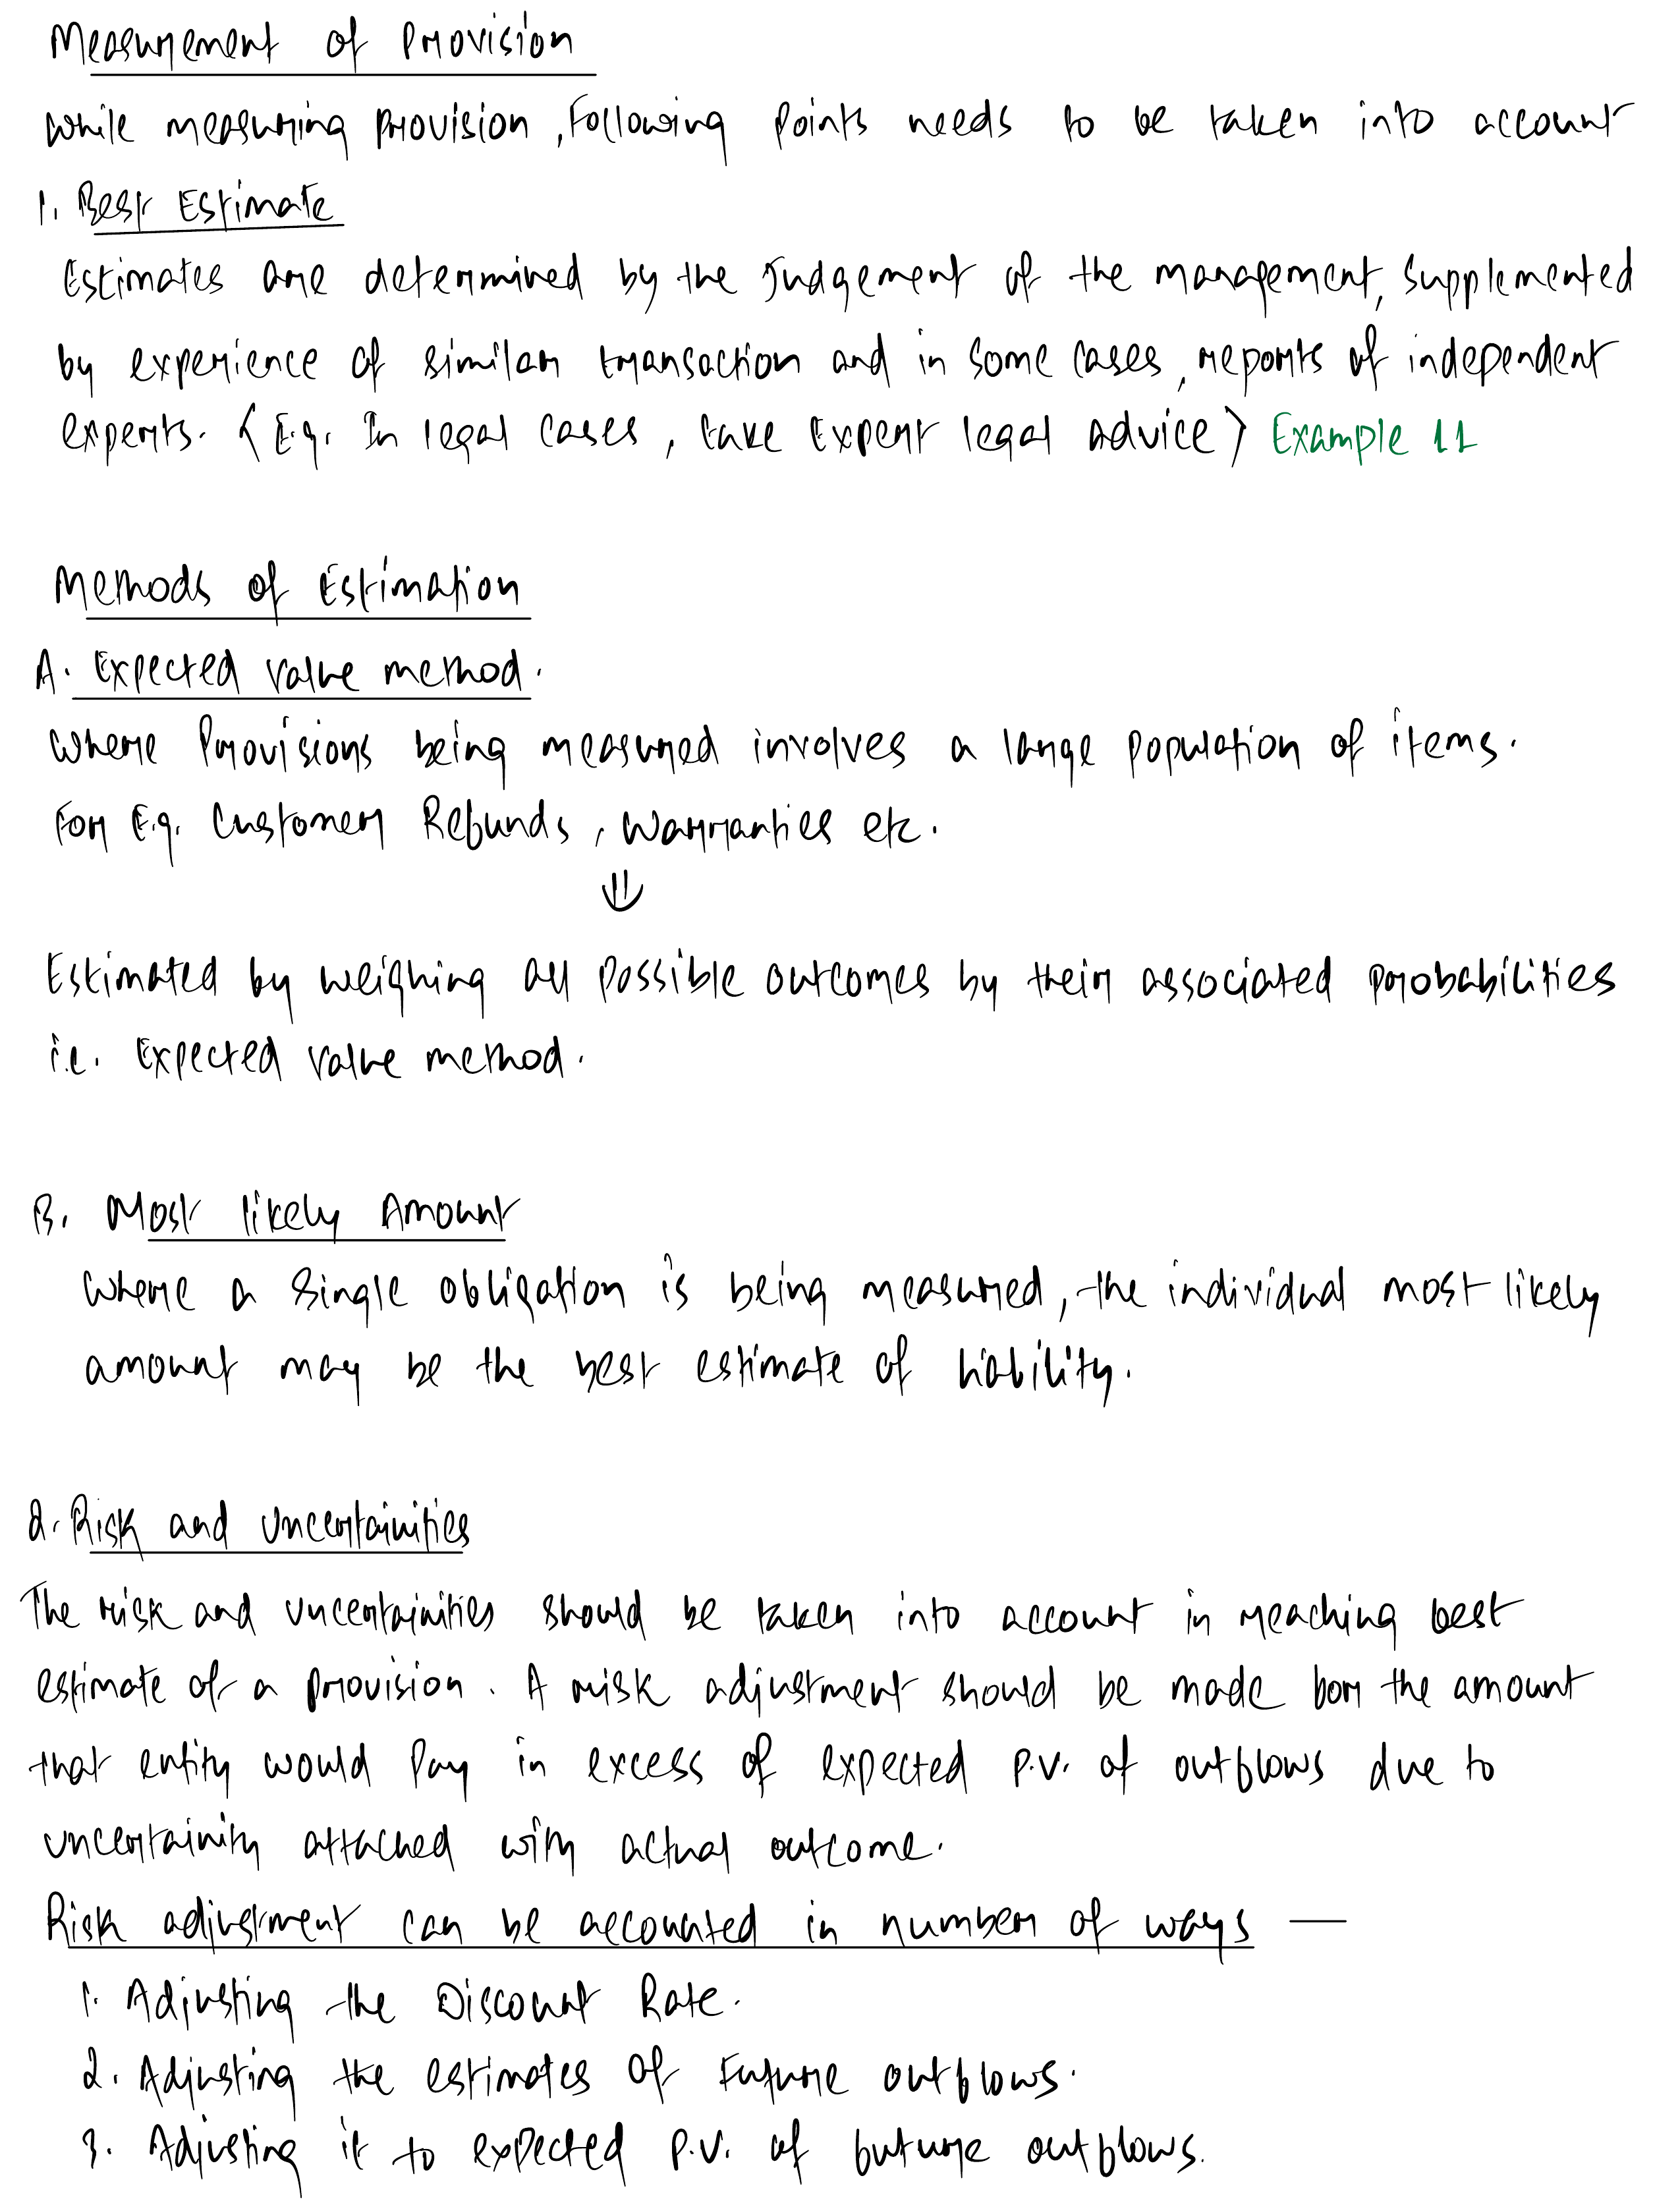 Measurement of Provision
While measuring provision, Following Points needs to be taken into account
1. Best Estimate
Estimates are determined by the Judgement of the management, supplemented
by experience of similar transaction and in some cases, reports of independent
experts. (E.g. In legal cases, take Expert legal advice) Example 11
Methods of Estimation
A. Expected value method.
Where Provisions being measured involves a large population of items.
For E.g. Customer Refunds, Warranties etc.
⇓
Estimated by weighing all possible outcomes by their associated probabilities
i.e. Expected value method.
B. Most likely Amount
Where a single obligation is being measured, the individual most likely
amount may be the best estimate of liability.
2. Risk and Uncertainities
The risk and uncertainities should be taken into account in reaching best
estimate of a provision. A risk adjustment should be made for the amount
that entity would pay in excess of expected p.v. of outflows due to
uncertainity attached with actual outcome.
Risk adjustment can be accounted in number of ways —
1. Adjusting the Discount Rate.
2. Adjusting the estimates of Future outflows.
3. Adjusting it to expected p.v. of future outflows.